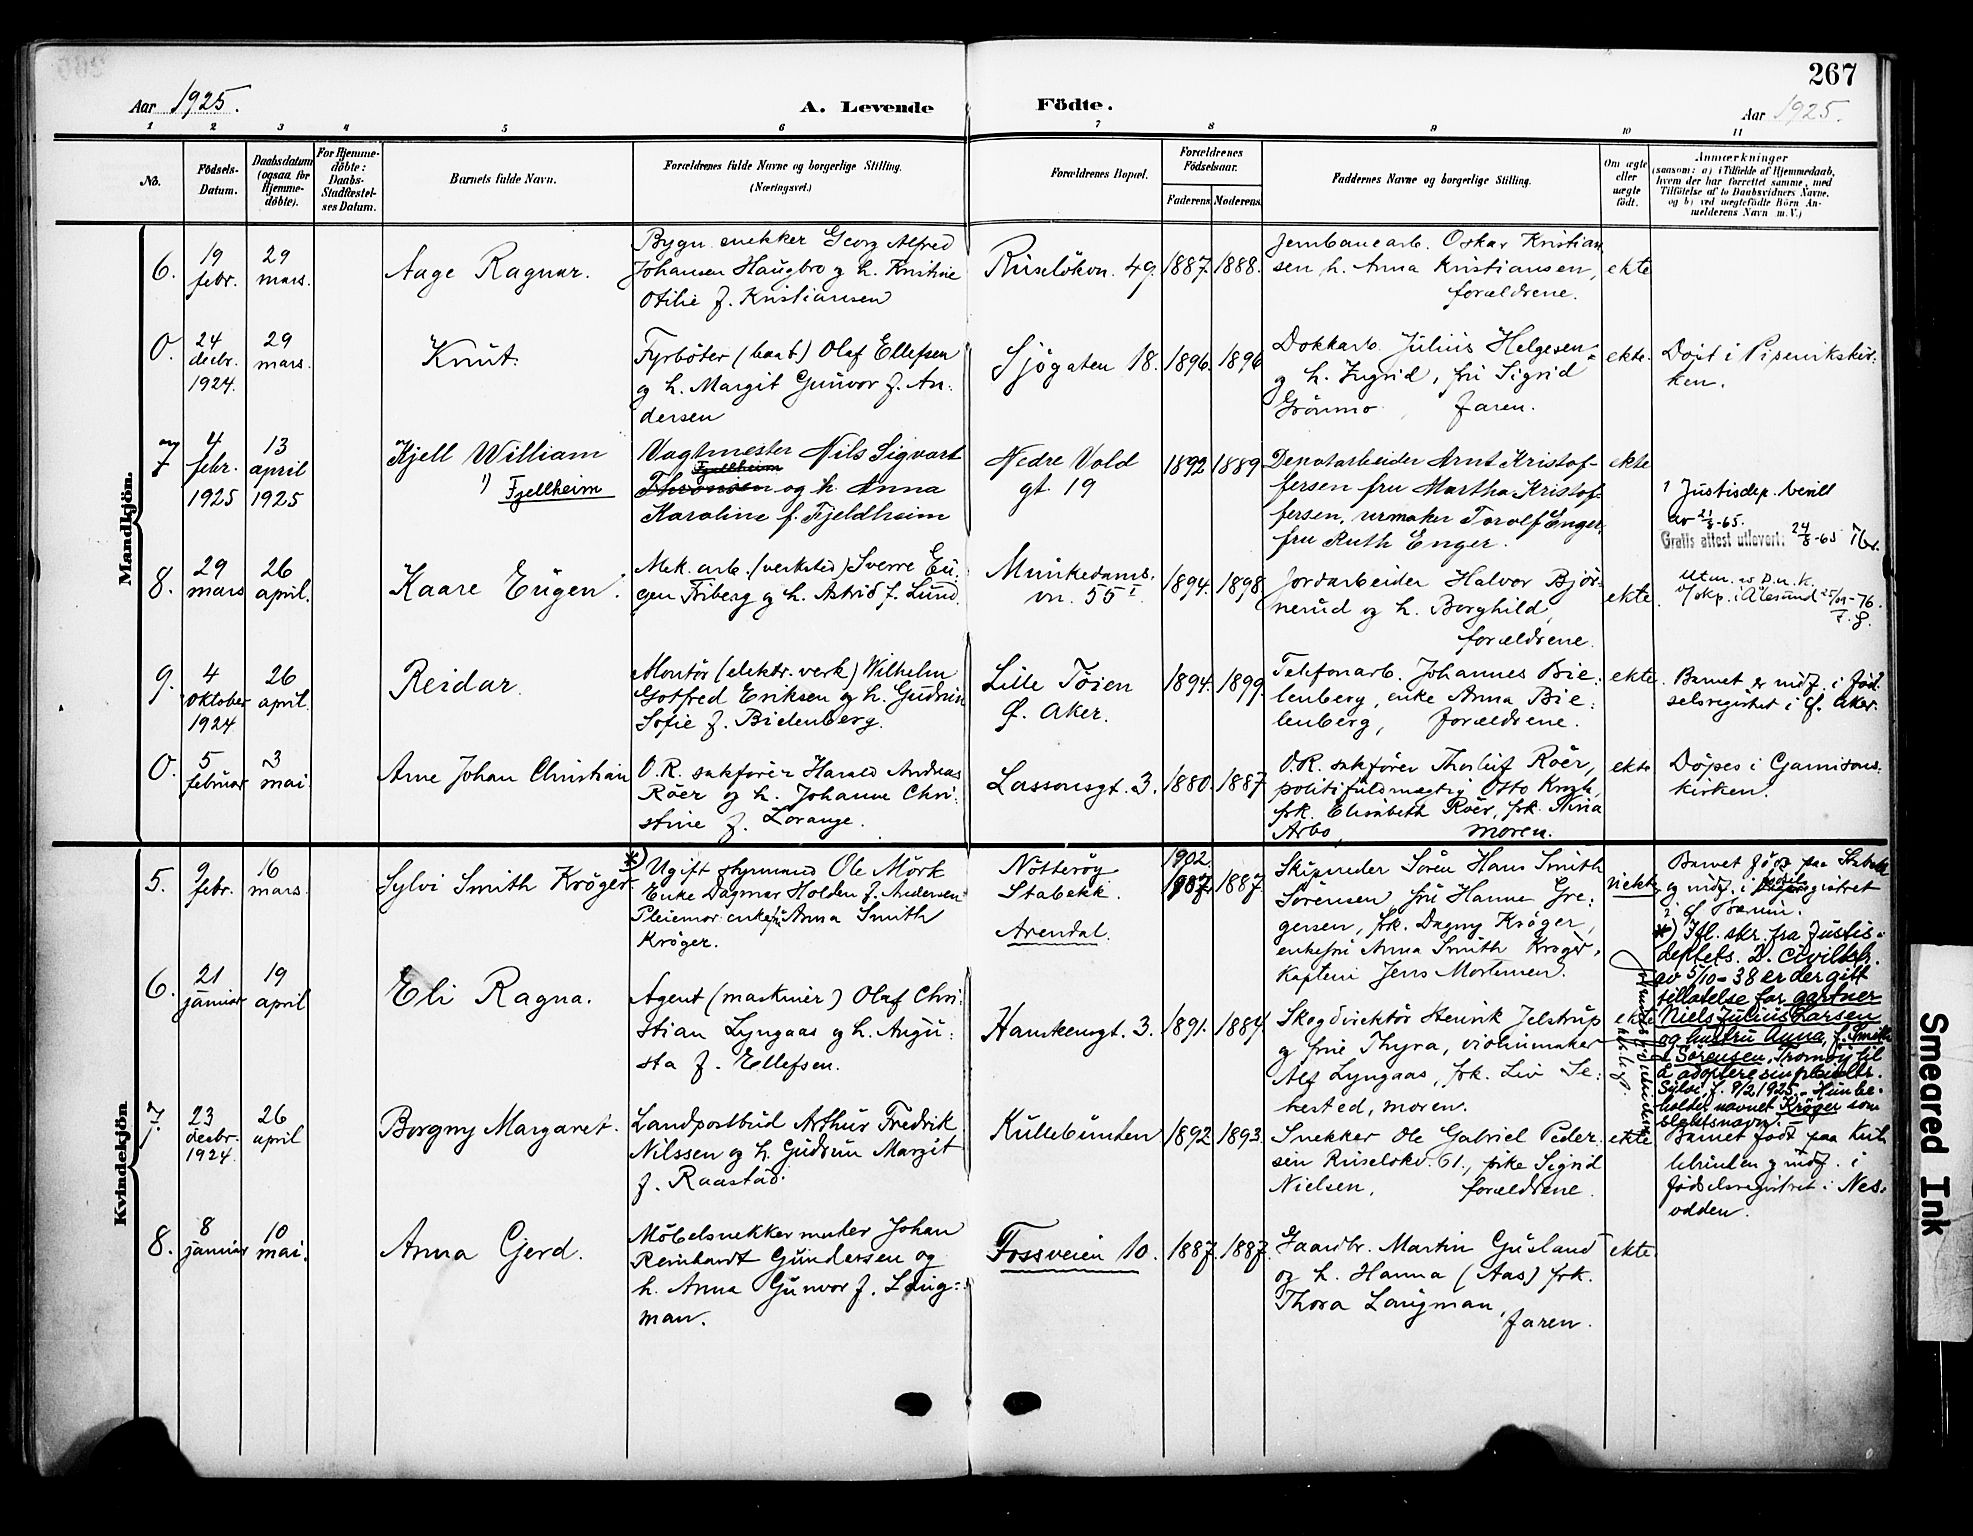 267
Aar 1925.
A. Levende
Födte.
Aar 1925.
1 2 3 4 5 6 7 8 9 10 11
No.
Födsels-
Datum.
Daabsdatum
(ogsaa for
Hjemme-
döbte).
For Hjemme-
döbte:
Daabs-
Stadfæstel-
ses Datum.
Barnets fulde Navn.
Forældrenes fulde Navne og borgerlige Stilling.
(Næringsvei.)
Forældrenes Bopæl.
Forældrenes
Födselsaar.
Faderens
Moderens.
Faddernes Navne og borgerlige Stilling.
Om ægte
eller
uægte
födt.
Anmærkninger
(saasom: a) i Tilfælde af Hjemmedaab,
hvem der har forrettet samme, med
Tilföielse af to Daabsvidners Navne.
og b) ved uægtefödte Börn An-
melderens Navn m. V.)
Mandkjön.
6.
19
febr.
29
mars.
Aage Ragnar.
Bygn. snekker Georg Alfred
Johansen Haugbro og h. Kristine
Otilie f. Kristiansen
Ruselökvn. 49.
1887.
1888.
Jernbanearb. Oskar Kristian
sen h. Anna Kristiansen,
forældrene.
ekte
0.
24
decbr.
1924.
29
mars.
Knut.
Fyrböter (baat) Olaf Ellefsen
og h. Margit Gunvor f. An-
dersen
Sjögaten 18.
1896.
1896
Dokkarb. Julius Helgesen
og h. Ingrid, fru Sigrid
Grönmo, faren.
ekte.
Döpt i Pipervikskir-
ken.
7
4
febr.
1925
13
april
1925
Kjell William
1) Fjellheim
Vagtmester Nils Sigvart
Fjellheim
Thronsen og h. Anna
Karoline f. Fjeldheim
Nedre Vold
gt. 19
1892
1889
Depotarbeider Arnt Kristof-
fersen fru Martha Kristof-
fersen, urmaker Torolf Enger,
fru Ruth Enger.
ekte
1 Justisdep. bevill
av 21/ -65.
Gratis attest utlevert: 24/8-65
8.
29
mars
26
april.
Kaare Eugen.
Mek. arb. (verksted) Sverre Eu-
gen Friberg og h. Astrid f. Lund.
Munkedams-
vn. 55 I
1894.
1898.
Jordarbeider Halvor Björ-
nerud og h. Borghild,
forældrene.
ekte.
Utm. av D.n.K.
v/skp. i Ålesund -76.
9.
4
oktober
1924
26
april.
Reidar.
Montör (elektr. verk) Wilhelm
Gotfred Eriksen og h. Gudrun
Sofie f. Bielenberg.
Lille Töien
Ö. Aker.
1894.
1899.
Telefonarb. Johannes Bie-
lenberg, enke Anna Bie-
lenberg, forældrene.
ekte.
Barnet er indf. i föd-
selsregistret i Ö. Aker.
0.
5
februar
3
mai
Arne Johan Christian
O.R. sakförer Harald Andreas
Röer og h. Johanne Chri-
stine f. Lorange.
Lassonsgt. 3.
1880.
1887
O.R. sakförer Thorleif Röer,
politifuldmægtig Otto Krogh,
frk. Elisabeth Röer, frk. Nina
Arbo, moren.
ekte
Döpes i Garnisons-
kirken.
Kvindekjön
5.
9
febr.
16
mars.
Sylvi Smith Kröger.
*) Ugift styrmand Ole Mörk
Enke Dagmar Holden f. Andersen
Pleiemor: enkefru Anna Smith
Kröger.
Nötteröy
Stabekk.
Arendal.
1902
1887.
1887.
Skipsreder Sören Hans Smith
Sörensen, fru Hanne Gre-
gersen, frk. Dagny Kröger,
enkefru Anna Smith Kröger,
Kaptein Jens Mortensen.
uekte.
Barnet född paa Stabekk
og indf. i födselsregistret
i Ö. Bærum.
*) Ifl. skr. fra Justis-
deptets. D. Civilavd.
av 5/10-38 er der gitt
tillatelse for gartner
Niels Julius Larsen
og hustru Anna, f. Smith
Sörensen, Tromöy til
å adoptere sin pleiedtr.
Sylvi, f. 9/2 1925. Hun be-
holder navnet Kröger som
slektsnavn.
6.
21
januar
19
april
Eli Ragna.
Agent (maskiner) Olaf Chri-
stian Lyngaas og h. Augu-
sta f. Ellefsen.
Hansteensgt. 3.
1891.
1884.
Skogdirektör Henrik Jelstrup
og frue Thyra, violinmaker
Alf Lyngaas, frk. Liv Se-
hested, moren.
ekte
7.
23
decbr.
1924.
26
april
Borgny Margaret.
Landpostbud Arthur Fredrik
Nilssen og h. Gudrun Margit
f. Raastad.
Kullebunden
1892
1893.
Snekker Ole Gabriel Peder-
sen Ruselökv. 61., frke Sigrid
Nielsen, forældrene.
ekte
Barnet födt paa Kul-
lebunden og indf. i
födselsregistret i Nes-
odden.
8.
8
januar
10
mai.
Anna Gjerd.
Möbelsnekkermester Johan
Reinhardt Gundersen og
h. Anna Gunvor f. Laug-
man.
Fossveien 10.
1887.
1887.
Gaardbr. Martin Gusland
og h. Hanna (Aas) frk.
Thora Laugman,
faren.
ekte.
Smeared Ink